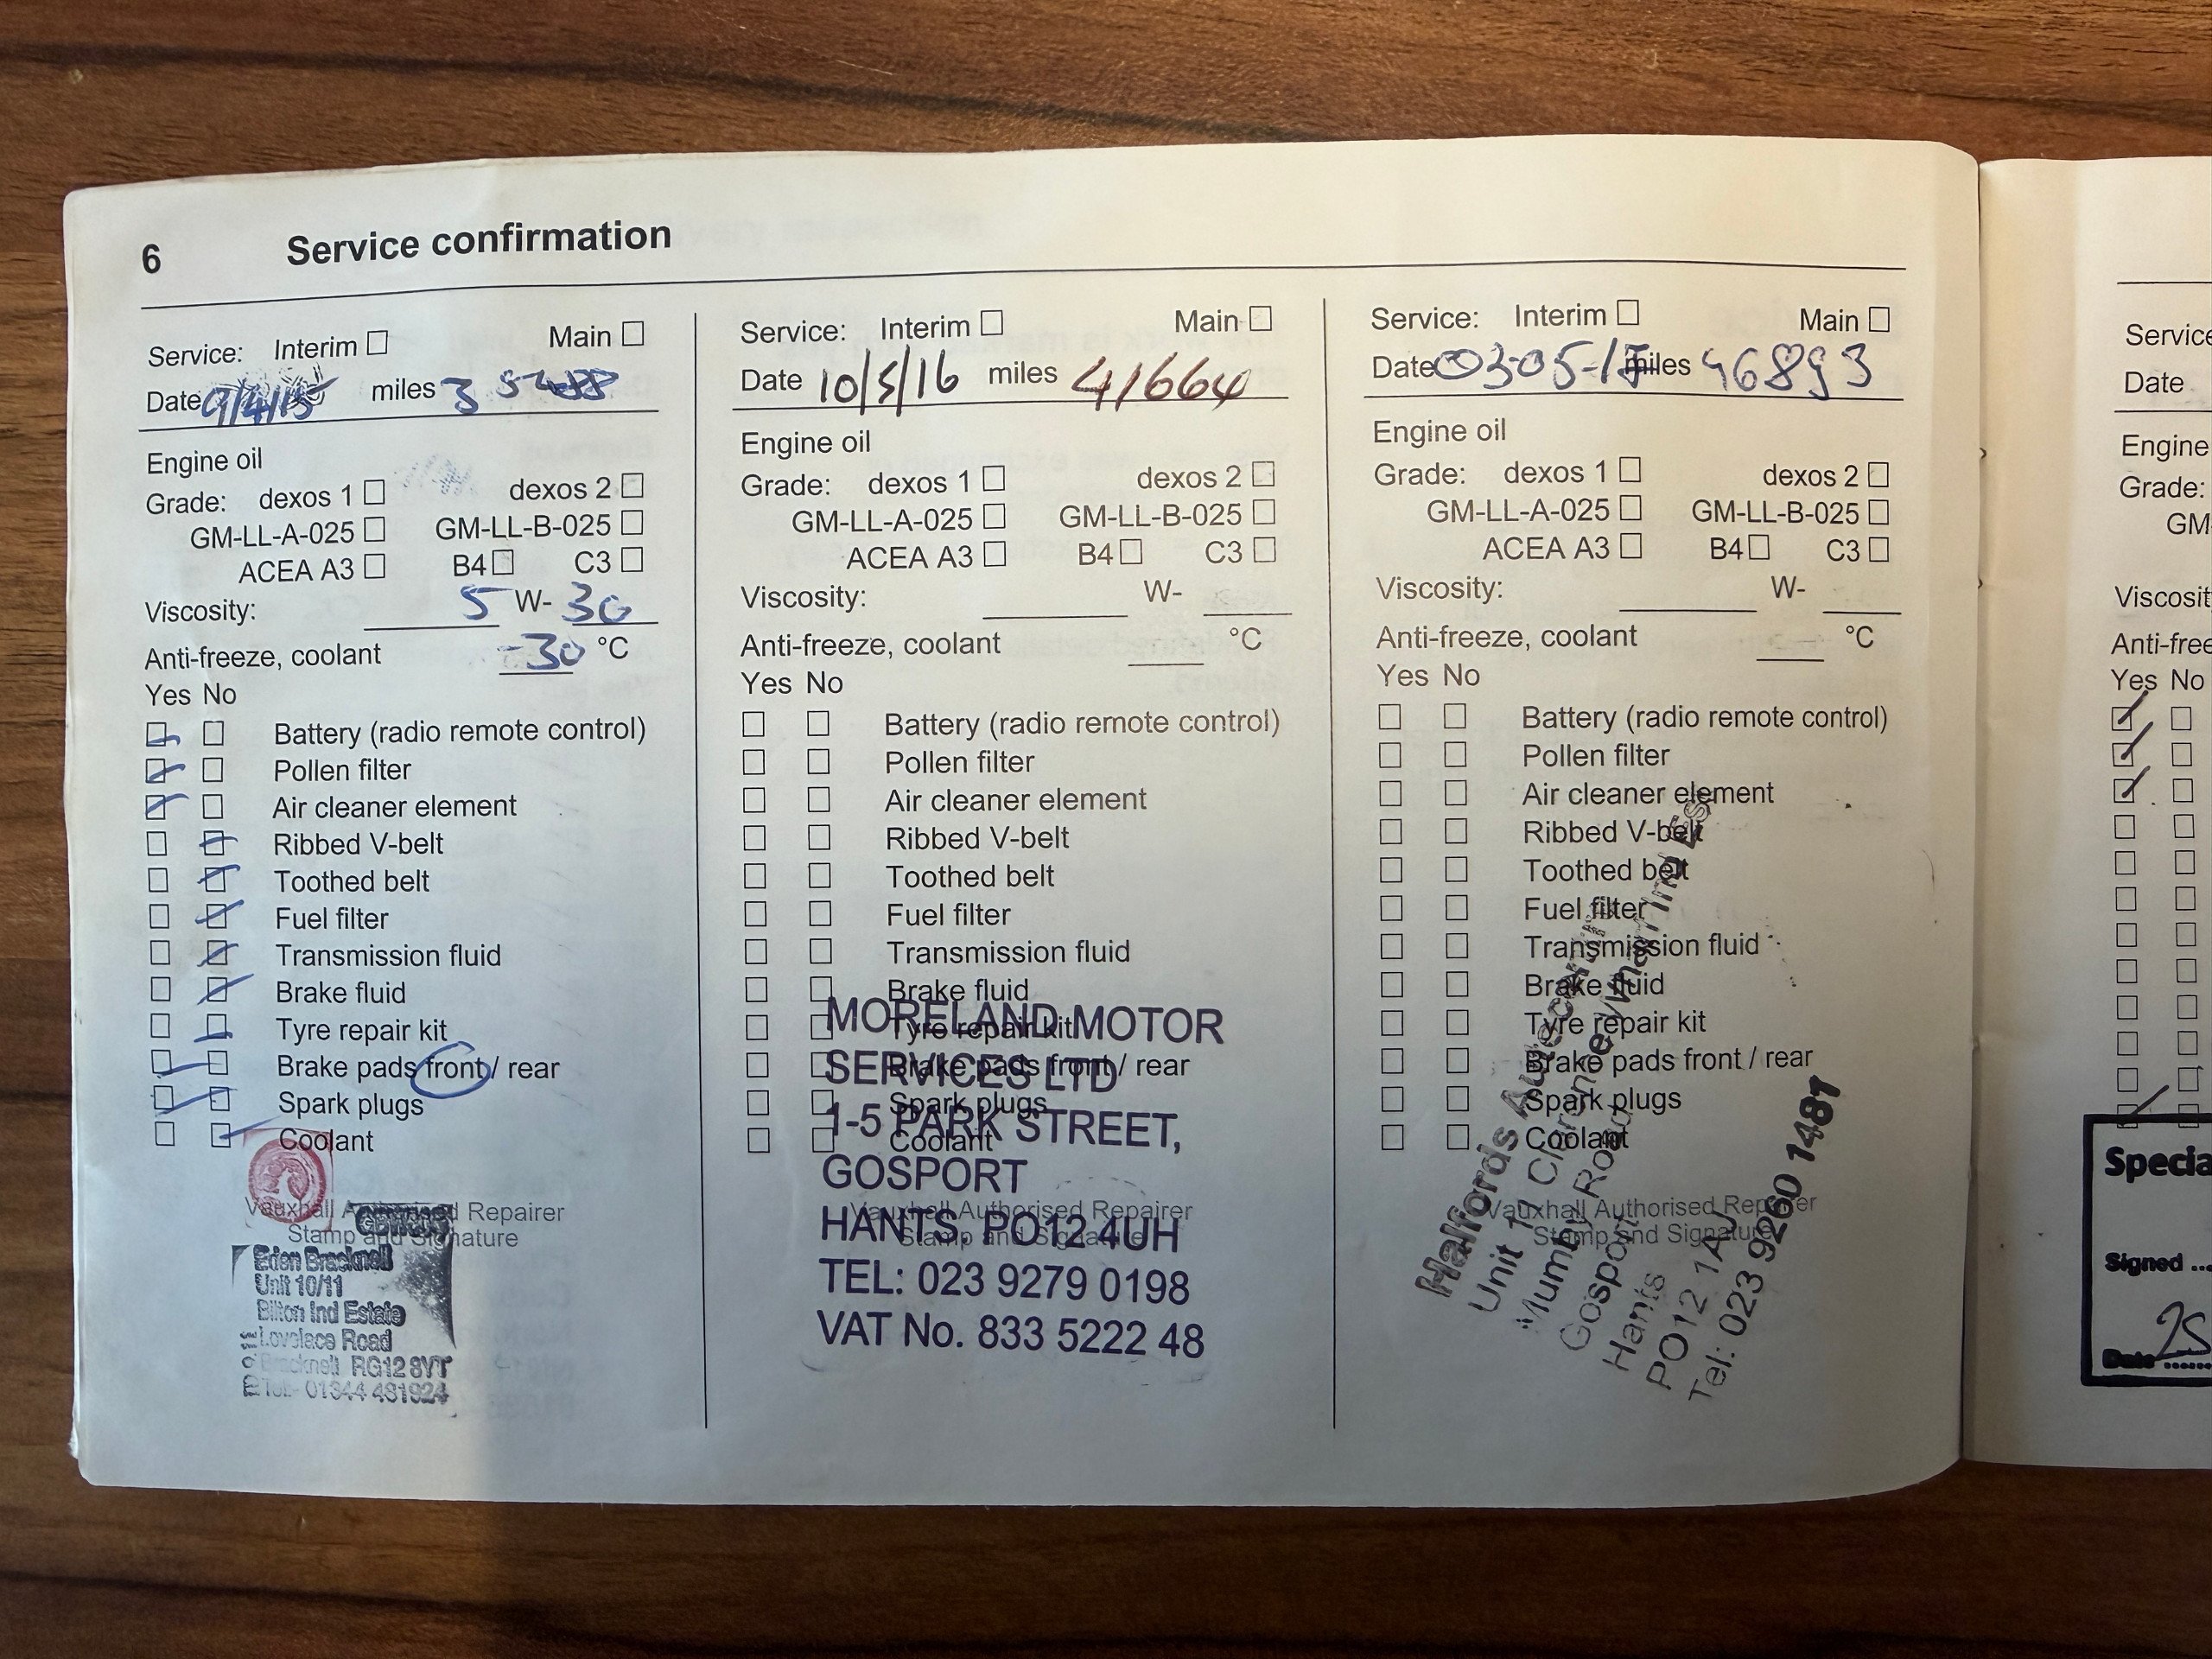 6 Service confirmation
Service: Interim Main
Date 9/4/15 miles 3
Engine oil
Grade: dexos 1 dexos 2
GM-LL-A-025 GM-LL-B-025
ACEA A3 B4 C3
Viscosity: 5 W- 30
Anti-freeze, coolant -30 °C
Yes No
Battery (radio remote control)
Pollen filter
Air cleaner element
Ribbed V-belt
Toothed belt
Fuel filter
Transmission fluid
Brake fluid
Tyre repair kit
Brake pads front / rear
Spark plugs
Coolant
Vauxhall Authorised Repairer
Stamp and Signature
Eden Bracknell
Unit 10/11
Bilton Ind Estate
Lovelace Road
Bracknell RG12 8YT
Tel: 01344 481924
Service: Interim Main
Date 10/5/16 miles 41664
Engine oil
Grade: dexos 1 dexos 2
GM-LL-A-025 GM-LL-B-025
ACEA A3 B4 C3
Viscosity: W-
Anti-freeze, coolant °C
Yes No
Battery (radio remote control)
Pollen filter
Air cleaner element
Ribbed V-belt
Toothed belt
Fuel filter
Transmission fluid
Brake fluid
Tyre repair kit
Brake pads front / rear
Spark plugs
Coolant
Vauxhall Authorised Repairer
Stamp and Signature
MORELAND MOTOR
SERVICES LTD
1-5 PARK STREET,
GOSPORT
HANTS. PO12 4UH
TEL: 023 9279 0198
VAT No. 833 5222 48
Service: Interim Main
Date 03-05-17 miles 46893
Engine oil
Grade: dexos 1 dexos 2
GM-LL-A-025 GM-LL-B-025
ACEA A3 B4 C3
Viscosity: W-
Anti-freeze, coolant °C
Yes No
Battery (radio remote control)
Pollen filter
Air cleaner element
Ribbed V-belt
Toothed belt
Fuel filter
Transmission fluid
Brake fluid
Tyre repair kit
Brake pads front / rear
Spark plugs
Coolant
Vauxhall Authorised Repairer
Stamp and Signature
Halfords Autocentre
Unit 11 Clarence Wharf Ind Est
Mumby Road
Gosport
Hants
PO12 1AJ
Tel: 023 9260 1481
Service
Date
Engine
Grade:
GM-
Viscosit
Anti-free
Yes No
Specia
Signed
Date 25